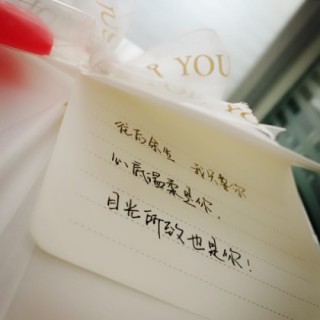 FOR YOU
往后余生 我只要你
心底温柔是你，
目光所致也是你！